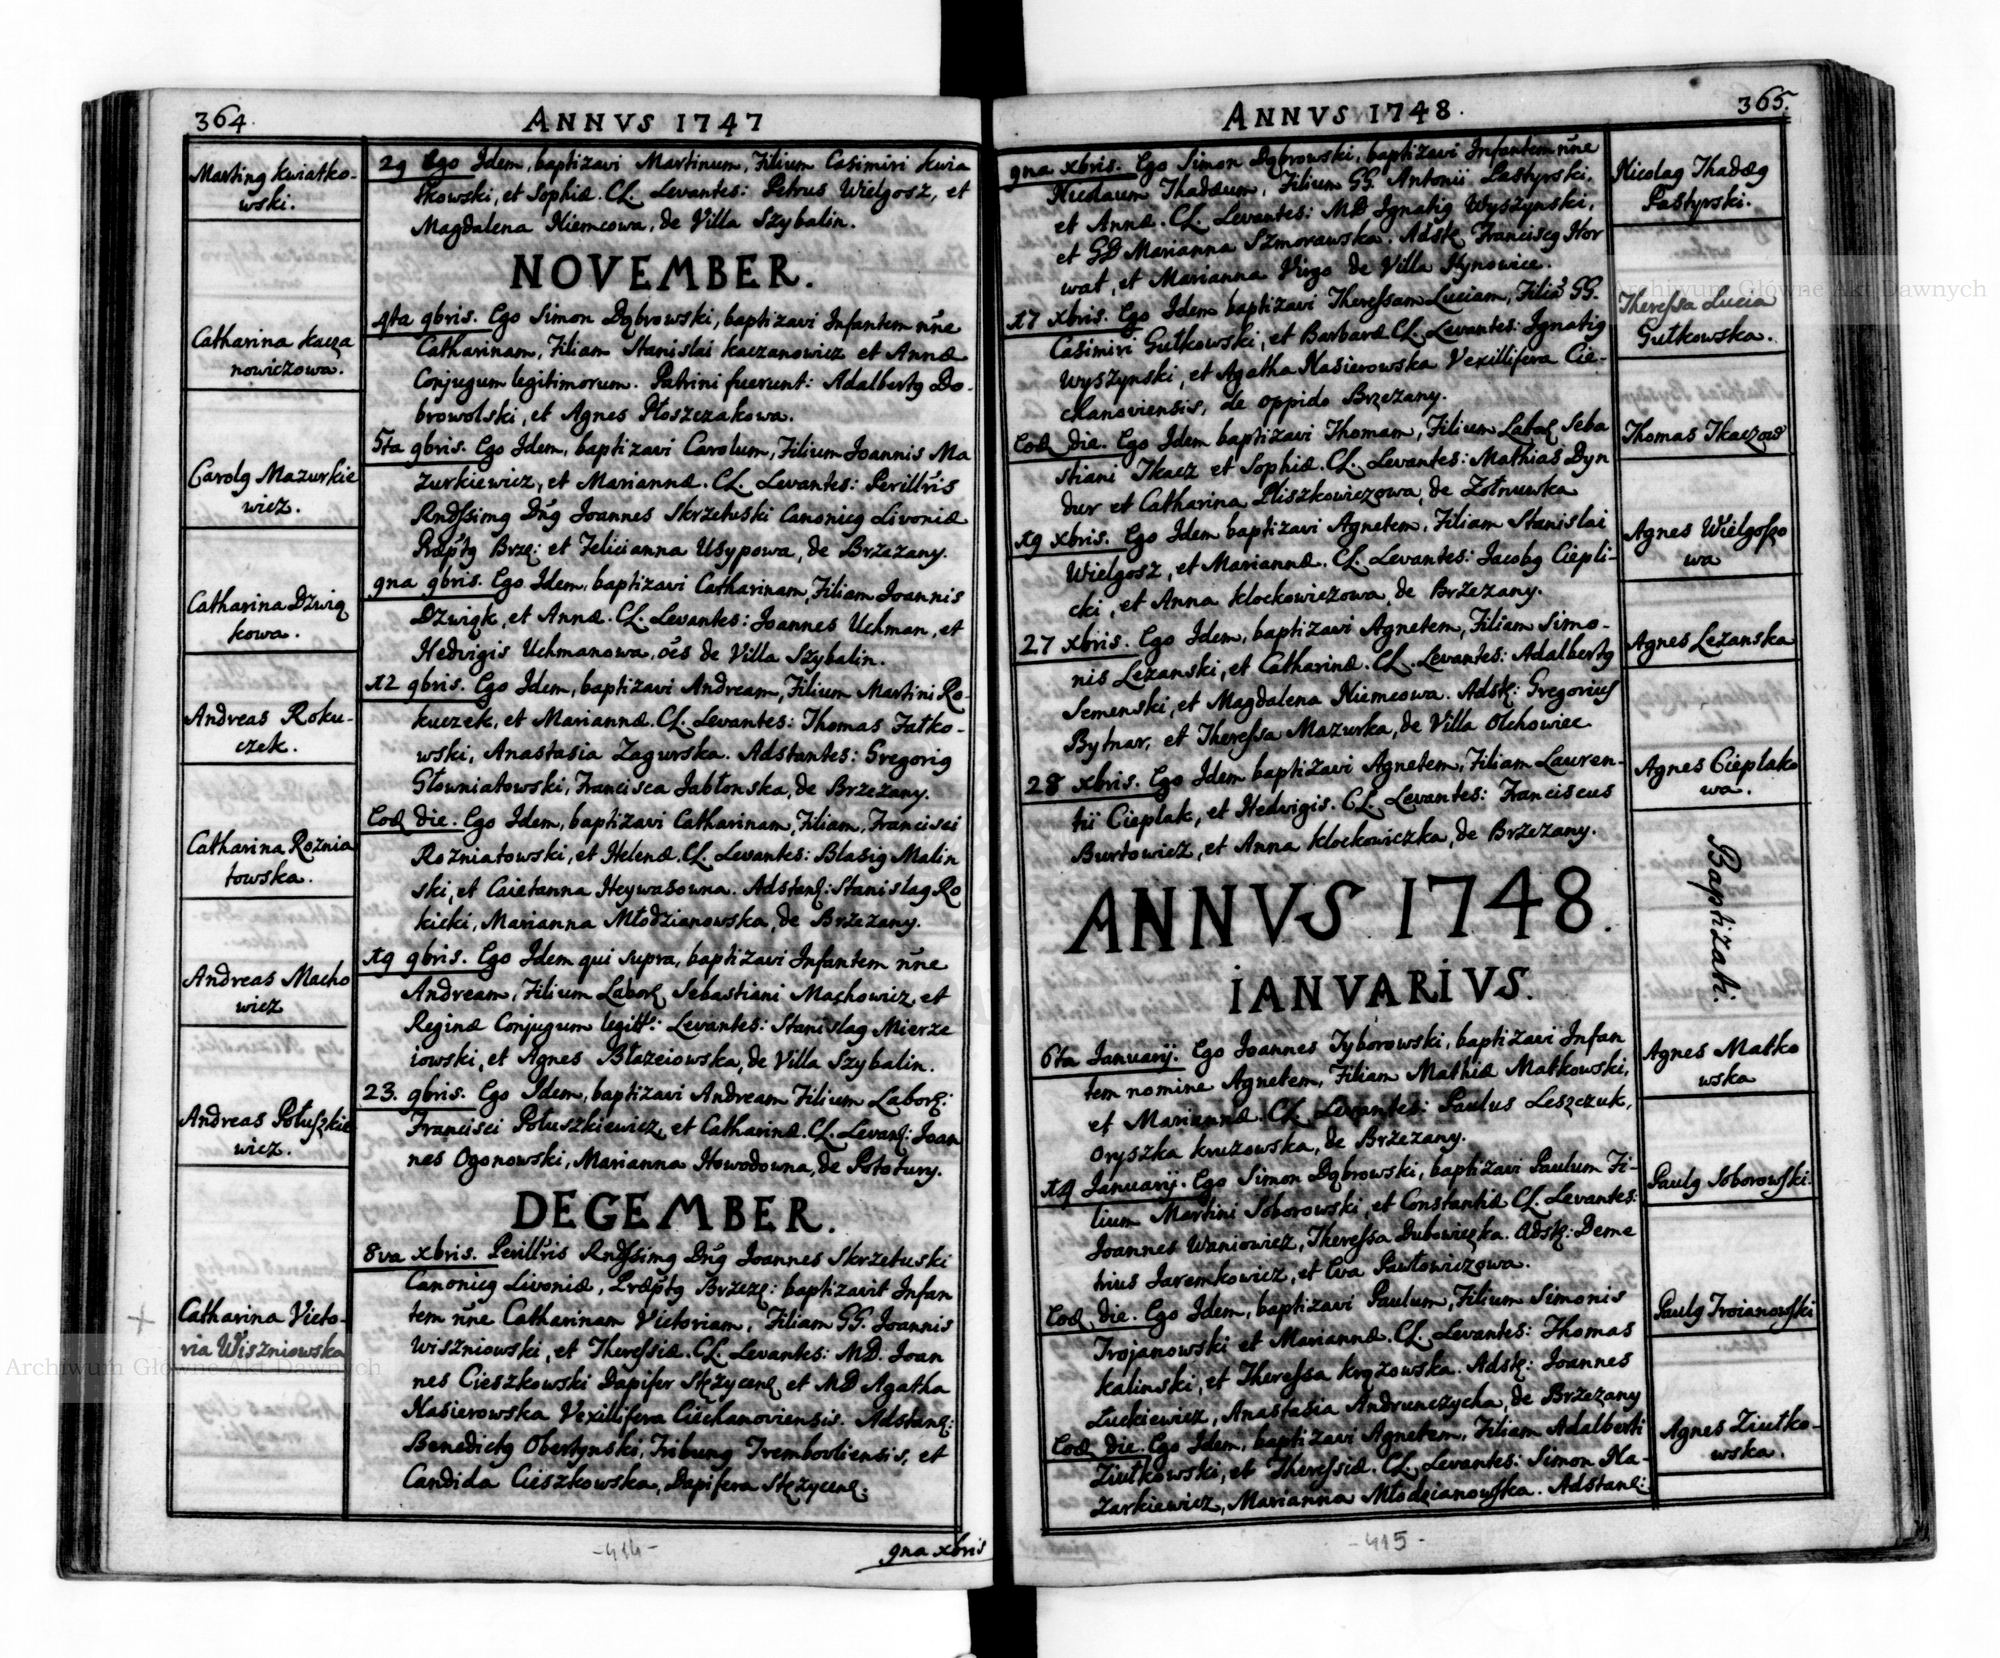 364.
ANNVS 1747
Martinꝯ Kwiatko-
wski.
29 Ego Idem, baptizavi Martinum, Filium Casimiri Kwia
tkowski, et Sophiæ. CL. Levantes: Petrus Wielgosz, et
Magdalena Niemcowa, de Villa Szybalin.
NOVEMBER.
Catharina Kacza
nowiczowa.
4ta 9bris. Ego Simon Dąbrowski, baptizavi Infantem nn̄e
Catharinam, Filiam Stanislai Kaczanowicz et Annæ
Conjugum legitimorum. Patrini fuerunt: Adalbertꝯ Do-
browolski, et Agnes Płoszczakowa.
Carolꝯ Mazurkie
wicz.
5ta 9bris. Ego Idem, baptizavi Carolum, Filium Joannis Ma
zurkiewicz, et Mariannæ. CL. Levantes: Perillr̄is
Rndſsimꝯ Dn̄ꝯ Joannes Skrzetuski Canonicꝯ Livoniæ
Præpr̄tꝯ Brzę: et Felicianna Usypowa, de Brzeżany.
Catharina Dzwią
kowa.
9na 9bris. Ego Idem, baptizavi Catharinam, Filiam Joannis
Dzwiąk, et Annæ. CL. Levantes: Joannes Uchman, et
Hedvigis Uchmanowa, oēs de Villa Szybalin.
Andreas Roku-
czek.
12 9bris. Ego Idem, baptizavi Andream, Filium Martini Ro-
kuczek, et Mariannæ. CL. Levantes: Thomas Fatko-
wski, Anastasia Zagurska. Adstantes: Gregoriꝯ
Głowniatowski, Francisca Jabłonska, de Brzeżany.
Catharina Roznia
towska.
Eod die. Ego Idem, baptizavi Catharinam, Filiam, Francisci
Rozniatowski, et Helenæ. CL. Levantes: Blasiꝯ Malin
ski, et Caietanna Heywasowna. Adstanꝭ: Stanislaꝯ Ro
kicki, Marianna Młodzianowska, de Brzeżany.
Andreas Macho
wicz
19 9bris. Ego Idem qui supra, baptizavi Infantem nn̄e
Andream, Filium Laborꝭ Sebastiani Machowicz, et
Reginæ Conjugum legitt: Levantes: Stanislaꝯ Mierze
iowski, et Agnes Błazeiowska, de Villa Szybalin.
Andreas Połuſzkie
wicz.
23. 9bris. Ego Idem, baptizavi Andream Filium Laborꝭ:
Francisci Połuszkiewicz, et Catharinæ. CL. Levanꝭ: Joan
nes Ogonowski, Marianna Howodowna, de Pototury.
DECEMBER.
Catharina Victo-
ria Wiszniowska
8va xbris. Perillr̄is Rndſsimꝯ Dn̄ꝯ Joannes Skrzetuski
Canonicꝯ Livoniæ, Præpr̄tꝯ Brzeżꝭ: baptizavit Infan
tem nn̄e Catharinam Victoriam, Filiam GG. Joannis
Wiszniowski, et Theresſiæ. CL. Levantes: MD. Joan
nes Cieszkowski Dapifer Stężycenꝭ et MD Agatha
Nasierowska Vexillifera Ciechanoviensis. Adstanꝭ:
Benedictꝯ Obertynski, Tribunꝯ Trembovliensis, et
Candida Cieszkowska, Dapifera Stężycenꝭ:
9na xbris
-414-
ANNVS 1748.
365.
9na xbris. Ego Simon Dąbrowski, baptizavi Infantem nn̄e
Nicolaum Thadæum, Filium GG. Antonii Pastyrski,
et Annæ. CL. Levantes: MD Ignatiꝯ Wyszynski,
et GD Marianna Szmorawska. Adstꝭ Franciscꝯ Hor
wat, et Marianna Virgo de Villa Hynowice.
Nicolaꝯ Thadæꝯ
Pastyrski.
17 xbris. Ego Idem baptizavi Theresſam Luciam, Filiā GG.
Casimiri Gutkowski, et Barbaræ CL. Levantes: Ignatiꝯ
Wyszynski, et Agatha Nasierowska Vexillifera Cie-
chanoviensis, de oppido Brzeżany.
Theresſa Lucia
Gutkowska.
Eod die. Ego Idem baptizavi Thomam, Filium Laborꝭ Seba
stiani Tkacz et Sophiæ. CL. Levantes: Mathias Dyn
dur et Catharina Pliszkowiczowa, de Żołnuwka
Thomas Tkaczow
19 xbris. Ego Idem baptizavi Agnetem, Filiam Stanislai
Wielgosz, et Mariannæ. CL. Levantes: Jacobꝯ Ciepli-
cki, et Anna Klockowiczowa, de Brzeżany.
Agnes Wielgoſzo
wa
27 xbris. Ego Idem, baptizavi Agnetem, Filiam Simo-
nis Leżanski, et Catharinæ. CL. Levantes: Adalbertꝯ
Semenski, et Magdalena Niemcowa. Adstꝭ: Gregorius
Bytnar, et Theresſa Mazurka, de Villa Olchowiec
Agnes Leżanska
28 xbris. Ego Idem baptizavi Agnetem, Filiam Lauren-
tii Cieplak, et Hedvigis. CL. Levantes: Franciscus
Burtowicz, et Anna Klockowiczka, de Brzeżany.
Agnes Cieplako
wa.
ANNVS 1748.
IANVARIVS.
Baptizati.
6ta Januarij. Ego Joannes Tyborowski, baptizavi Infan
tem nomine Agnetem, Filiam Mathiæ Matkowski,
et Mariannæ. CL. Levantes: Paulus Leszczuk,
Oryszka Kruzowska, de Brzeżany.
Agnes Matko
wska
14 Januarij. Ego Simon Dąbrowski, baptizavi Paulum Fi-
lium Martini Soborowski, et Constantiæ CL. Levantes:
Joannes Waniowicz, Theresſa Dubowięka. Adstꝭ: Deme
trius Jaremkowicz, et Eva Pawłowiczowa.
Paulꝯ Soborowſki.
Eod die. Ego Idem, baptizavi Paulum, Filium Simonis
Trojanowski et Mariannæ. CL. Levantes: Thomas
Kalinski, et Theresſa Krążowska. Adstꝭ: Joannes
Łuckiewicz, Anastasia Andrunczycha, de Brzeżany
Paulꝯ Troianowſki
Eod die. Ego Idem, baptizavi Agnetem, Filiam Adalberti
Ziutkowski, et Theresſiæ. CL. Levantes: Simon Na-
zarkiewicz, Marianna Młodzianowſka. Adstanꝭ:
Agnes Ziutko-
wska.
-415-
Archiwum Główne Akt Dawnych
Archiwum Główne Akt Dawnych